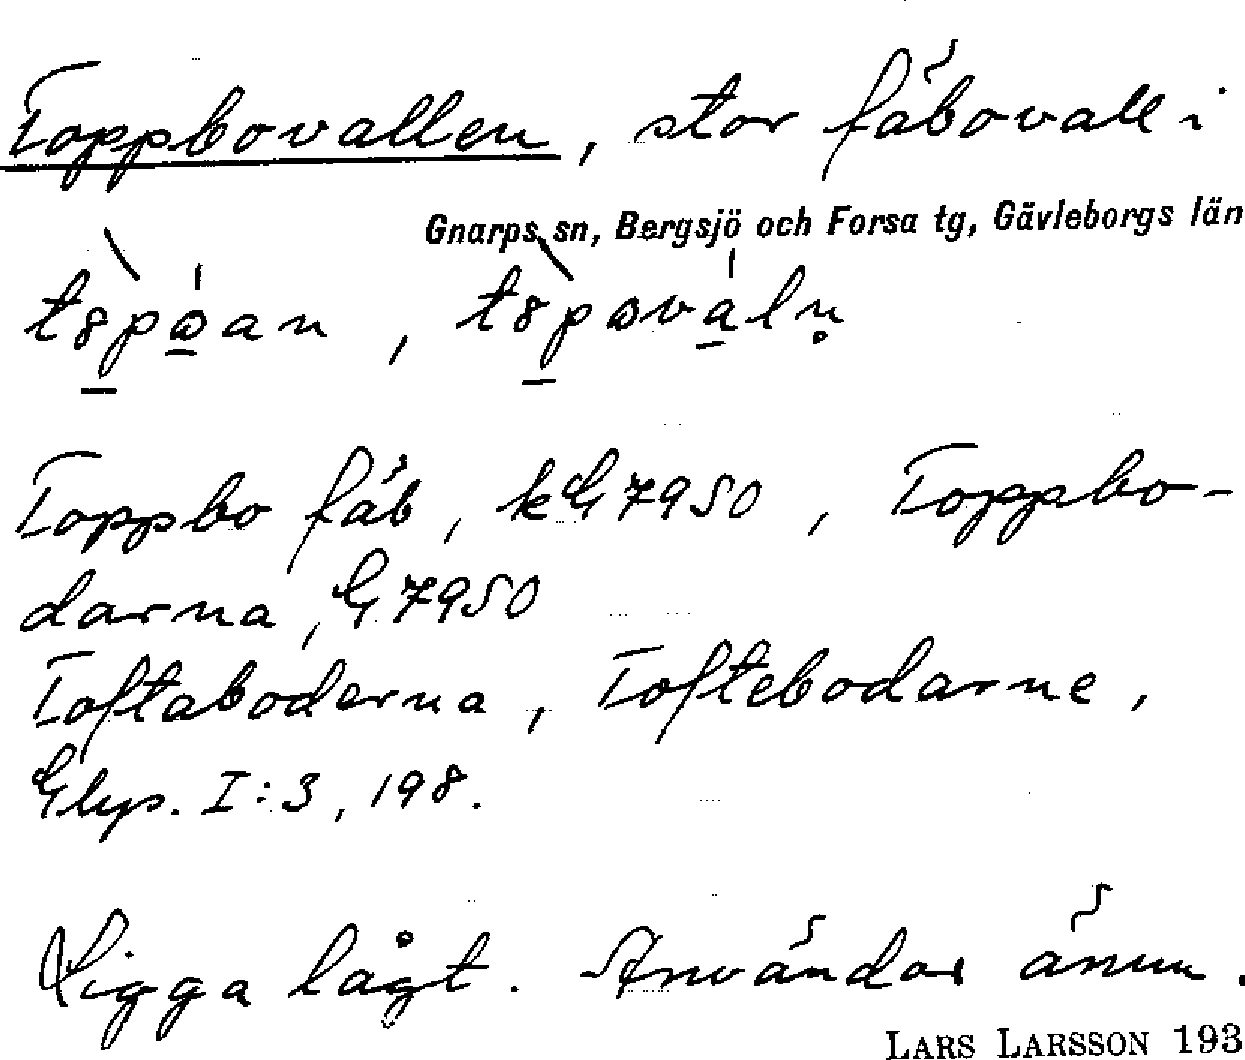 Toppbovallen, stor fäbovall i
Gnarps sn, Bergsjö och Forsa tg, Gävleborgs län
Toppbo fäb, kG 7950, Toppbo-
darna, G 7950
Toftaboderna, Toftebodarne,
Glys. I:3, 198.
Ligga lågt. Användas ännu.
LARS LARSSON 193